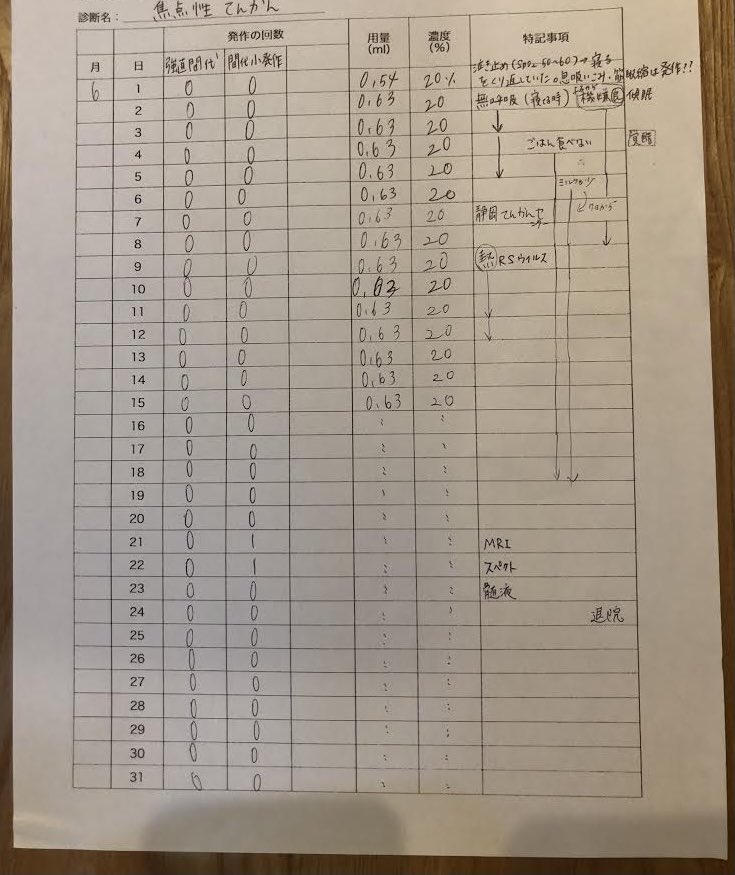 診断名： 焦点性てんかん
発作の回数 用量(ml) 濃度(%) 特記事項
月 日 強直間代 間代小発作
泣き止め(SpO2 50~60)→寝る
6 1 0 0 0.54 20% をくり返していた。息吸いこみ、 収縮は発作!?
2 0 0 0.63 20 無呼吸(寝る時) 機嫌 傾眠
3 0 0 0.63 20
4 0 0 0.63 20 ごはん食べない 覚醒
5 0 0 0.63 20
6 0 0 0.63 20
7 0 0 0.63 20 静岡てんかんセンター
8 0 0 0.63 20
9 0 0 0.63 20 熱 RSウイルス
10 0 0 0.63 20
11 0 0 0.63 20
12 0 0 0.63 20
13 0 0 0.63 20
14 0 0 0.63 20
15 0 0 0.63 20
16 0 0 : :
17 0 0 : :
18 0 0 : :
19 0 0 : :
20 0 0 : :
21 0 1 : : MRI
22 0 1 : : スペクト
23 0 0 : : 髄液
24 0 0 : : 退院
25 0 0 : :
26 0 0 : :
27 0 0 : :
28 0 0 : :
29 0 0 : :
30 0 0 : :
31 0 0 : :